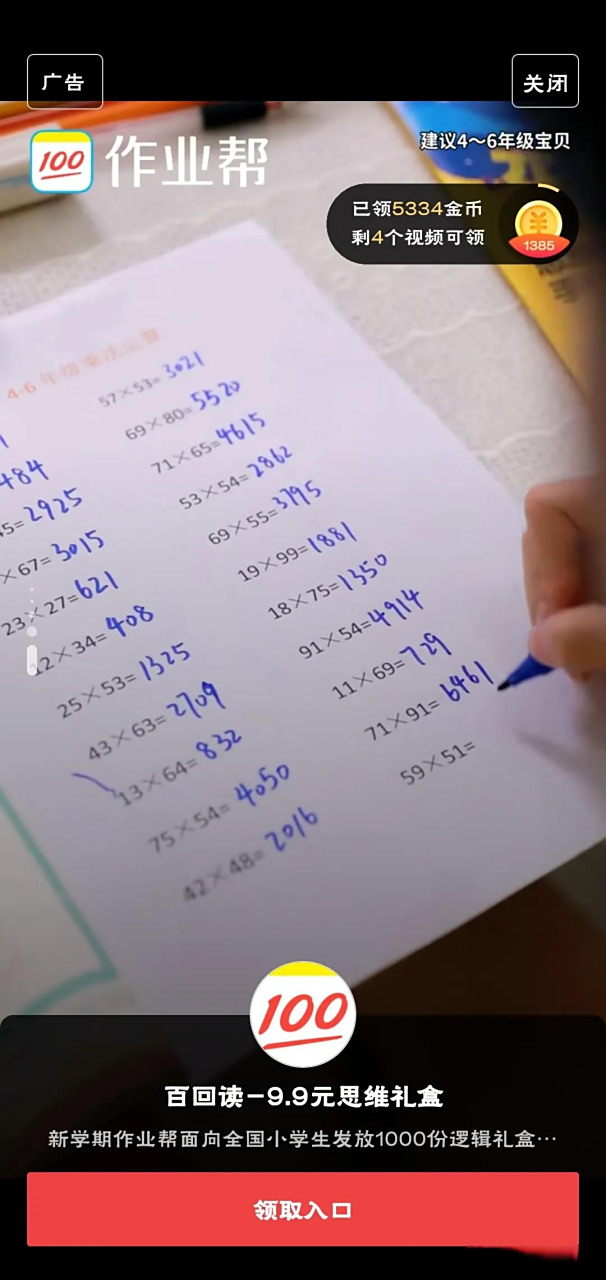 广告
关闭
100
作业帮
建议4～6年级宝贝
已领5334金币
剩4个视频可领
1385
4-6年级乘法运算
57×53=3021
69×80=5520
71×65=4615
53×54=2862
69×55=3795
19×99=1881
18×75=1350
91×54=4914
11×69=729
71×91=6461
59×51=
484
45=2925
×67=3015
23×27=621
12×34=408
25×53=1325
43×63=2709
13×64=832
75×54=4050
42×48=2016
100
百回读-9.9元思维礼盒
新学期作业帮面向全国小学生发放1000份逻辑礼盒…
领取入口